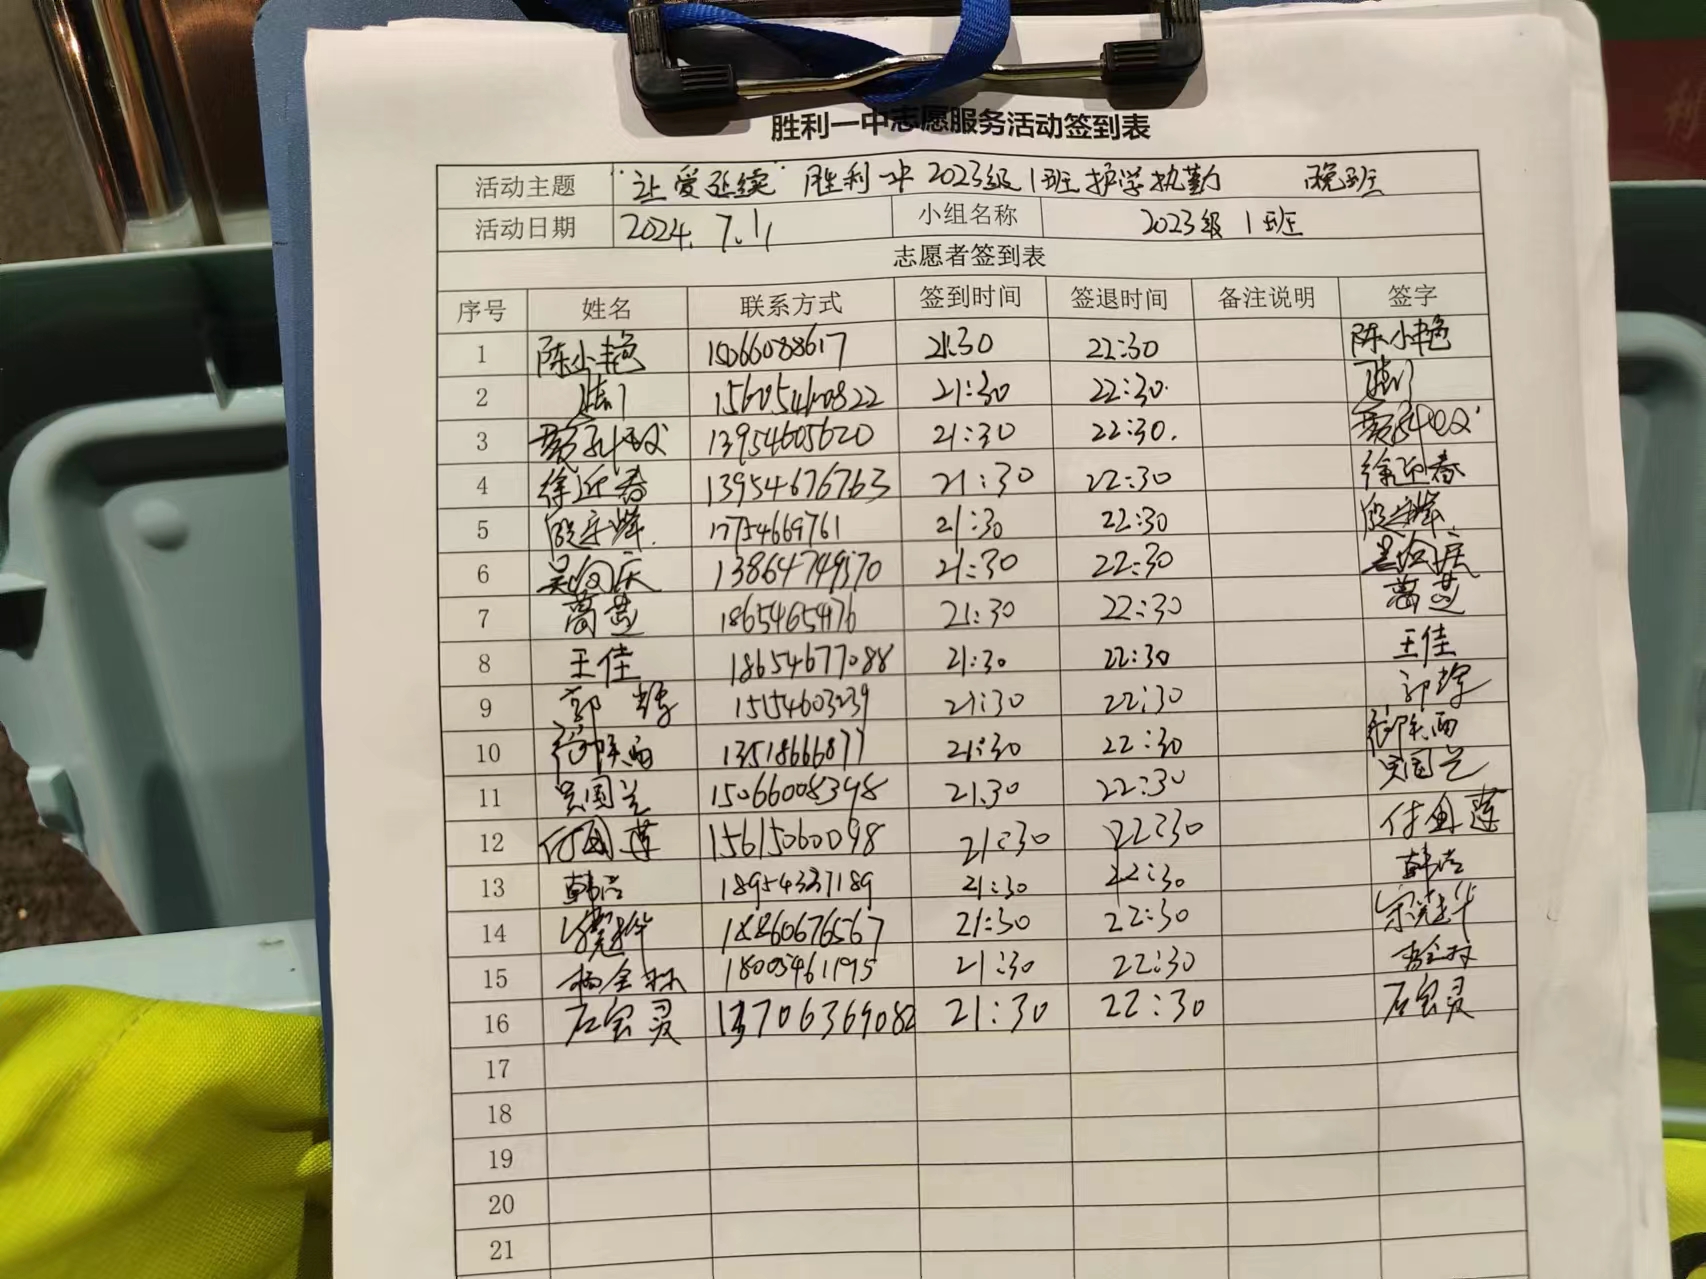 胜利一中志愿服务活动签到表
活动主题 "让爱延续" 胜利一中2023级1班护学执勤 晚班
活动日期 2024.7.1 小组名称 2023级1班
志愿者签到表
序号 姓名 联系方式 签到时间 签退时间 备注说明 签字
1 陈小艳 15066088617 21:30 22:30 陈小艳
2 15605460822 21:30 22:30
3 13954605620 21:30 22:30
4 徐迎春 13954676763 21:30 22:30 徐迎春
5 17754669761 21:30 22:30
6 13864749370 21:30 22:30
7 18654654476 21:30 22:30
8 王佳 18654677088 21:30 22:30 王佳
9 郭 15154603239 21:30 22:30 郭
10 陕西 13518666877 21:30 22:30 陕西
11 吴国兰 15066008398 21:30 22:30 吴国兰
12 付 莲 15615060098 21:30 22:30 付 莲
13 韩洁 18954337189 21:30 22:30 韩洁
14 华 18860676567 21:30 22:30 宋 华
15 杨金 18005461195 21:30 22:30
16 石宝灵 13706369082 21:30 22:30 石宝灵
17
18
19
20
21